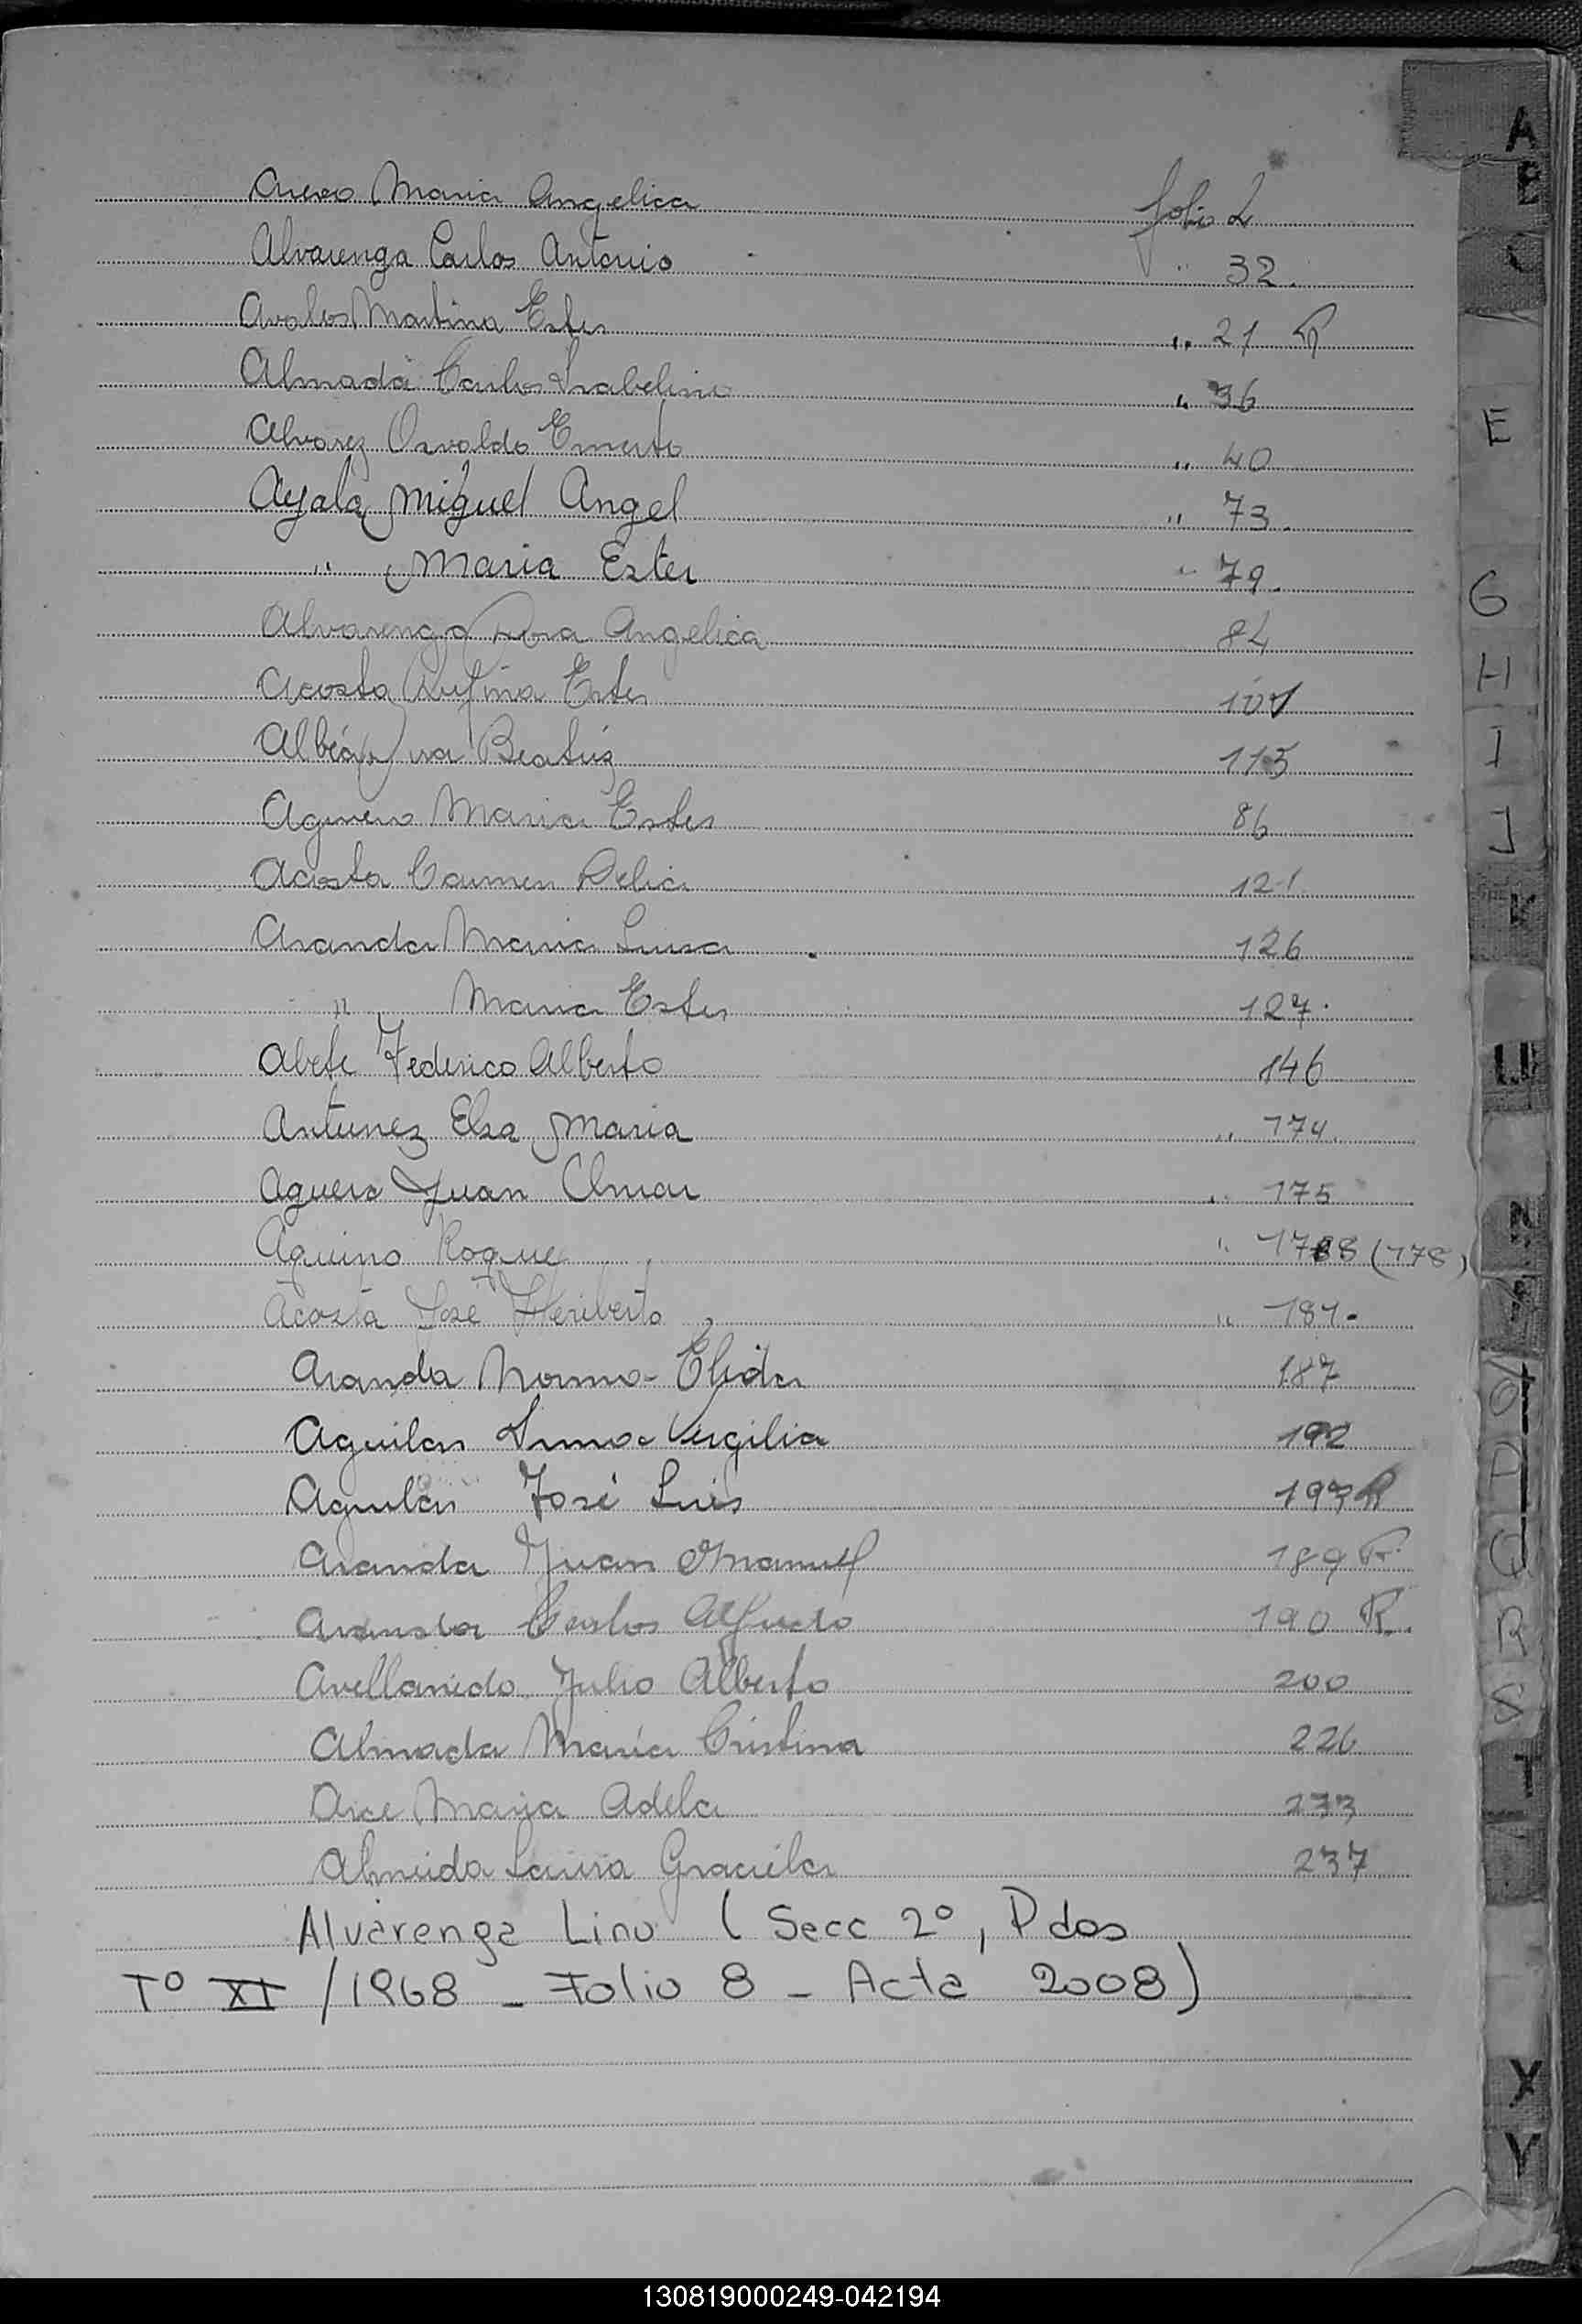 Maria Angelica folio 2
Alvarenga Carlos Antonio " 32.
Avalos Martina Ester " 21 R
Almada Carlos Isabelino " 36
Alvarez Osvaldo Ernesto " 40
Ayala Miguel Angel " 73.
" Maria Ester " 79.
Alvarenga Rosa Angelica 82
Acosta Rufina Ester 101
Beatriz 113
Aguero Maria Ester 86
Acosta Carmen Delia 121
Aranda Maria Luisa 126
" Maria Ester 127.
Abete Federico Alberto 146
Antunez Elsa Maria " 174.
Aguero Juan Omar " 175
Aquino Roque " 1788 (178)
Acosta José Heriberto " 181-
Aranda Norma Elida 187
Aguilar Irma Virgilia 192
Aguilar José Luis 193 R
Aranda Juan Manuel 189 R
Aranda Carlos Alfredo 190 R.
Avellaneda Julio Alberto 200
Almada María Cristina 226
Arce Maria Adela 233
Almeida Laura Graciela 237
Alvarenga Lino (Secc 2º, Pdos
Tº XI / 1968 - Folio 8 - Acta 2008)
A
B
C
E
G
H
I
J
K
LL
N
O
P
Q
R
S
T
X
Y
130819000249-042194